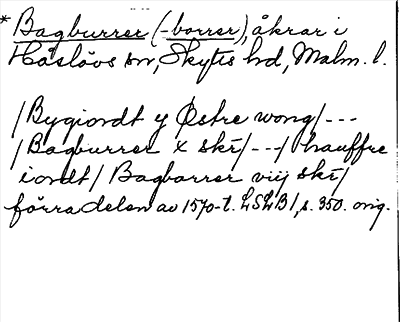 * Bagburrer (-borrer), åkrar i
Håslövs sn, Skytts hd, Malm. l.
/Bygiordt y Østre wong/ ---
/Bagburrer x skr/ --- / hauffre
iordt/ Bagborrer viij skr/
förra delen av 1570-t. LSLB 1, s. 350. orig.